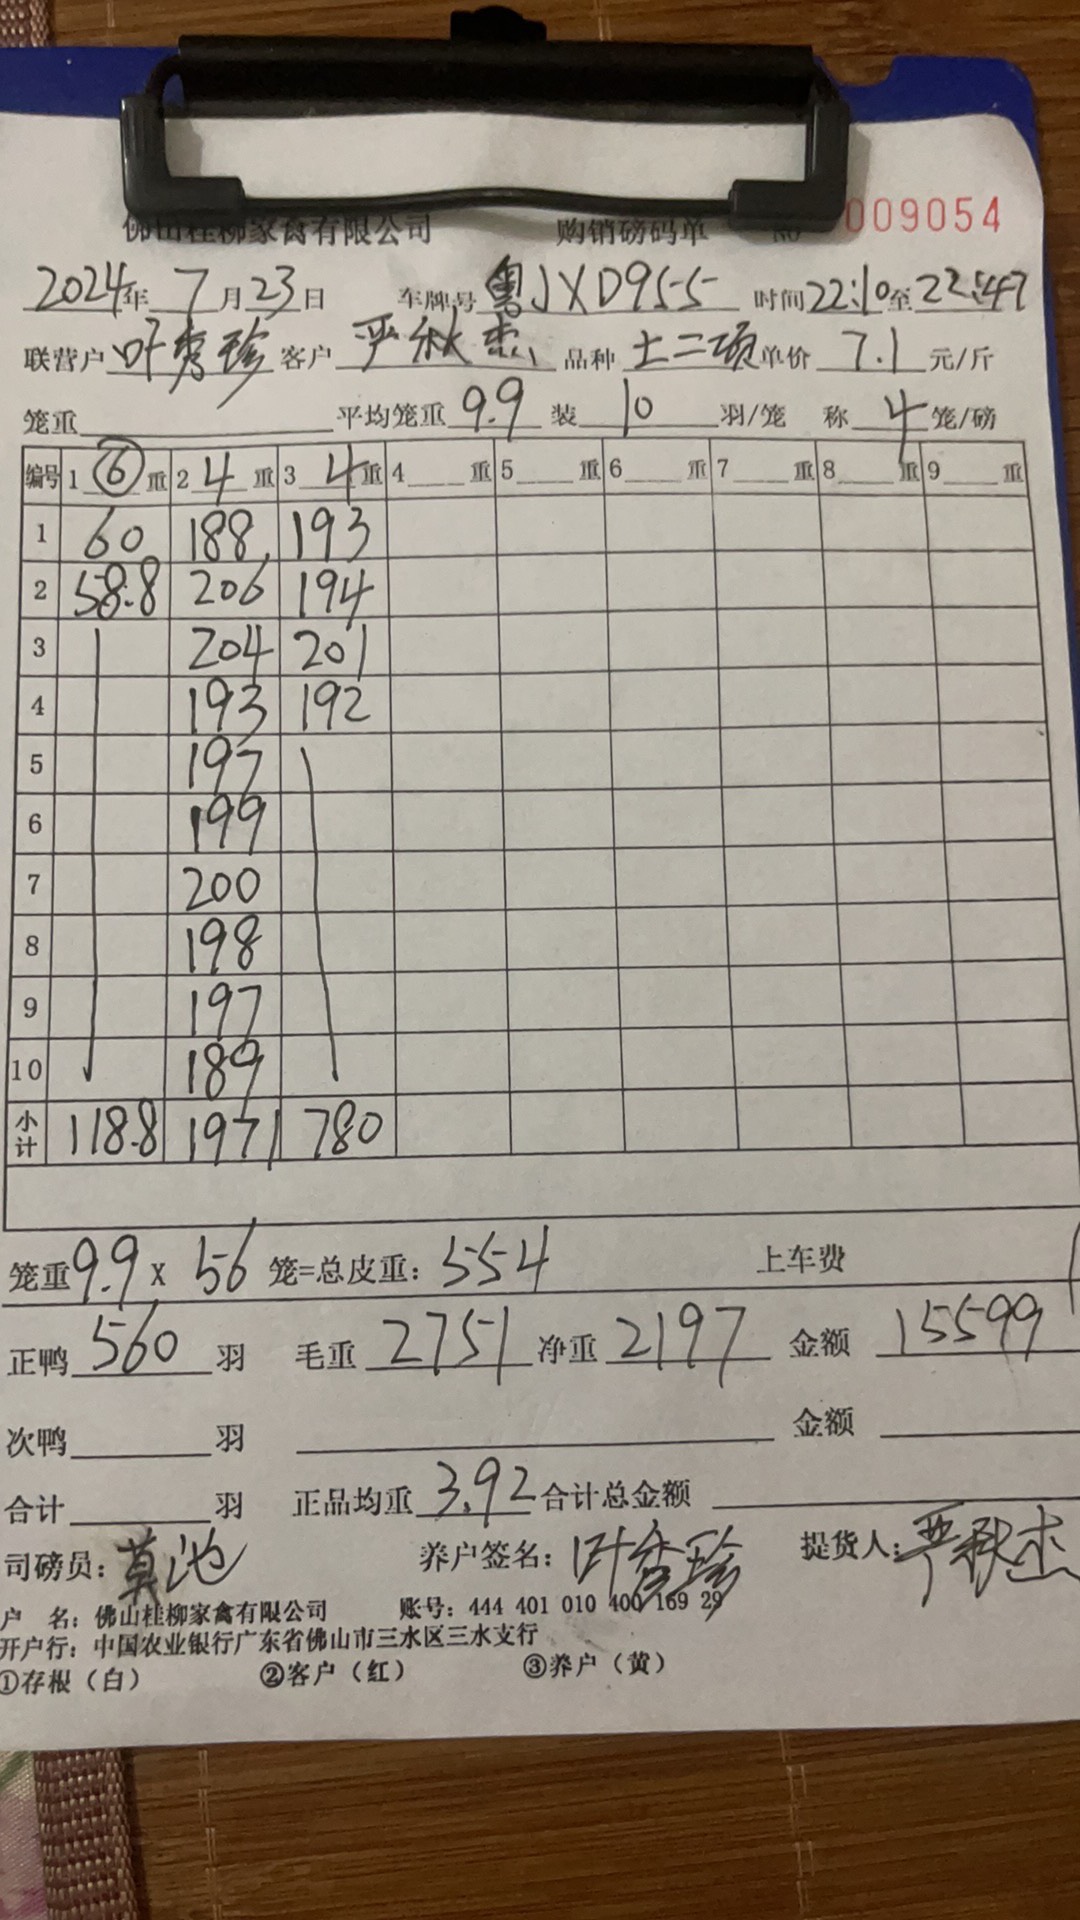 佛山桂柳家禽有限公司 购销磅码单 NO 009054
2024年 7月23日 车牌号 粤JXD955 时间22:10至22:47
联营户 叶秀珍 客户 严秋杰 品种 土二项 单价 7.1 元/斤
笼重 平均笼重 9.9 装 10 羽/笼 称 4 笼/磅
编号 1 6 重 2 4 重 3 4 重 4 重 5 重 6 重 7 重 8 重 9 重
1 60 188 193
2 58.8 206 194
3 204 201
4 193 192
5 197
6 199
7 200
8 198
9 197
10 189
小计 118.8 1971 780
笼重9.9 x 56 笼=总皮重: 554 上车费
正鸭 560 羽 毛重 2751 净重 2197 金额 15599
次鸭 羽 金额
合计 羽 正品均重 3.92 合计总金额
司磅员: 莫池 养户签名: 叶秀珍 提货人: 严秋杰
户 名: 佛山桂柳家禽有限公司 账号: 444 401 010 400 169 29
开户行: 中国农业银行广东省佛山市三水区三水支行
①存根（白） ②客户（红） ③养户（黄）